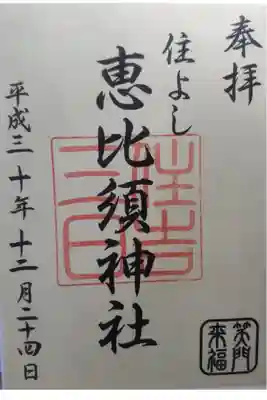 奉拝
住よし
恵比須神社
平成三十年十二月二十四日
笑門
来福